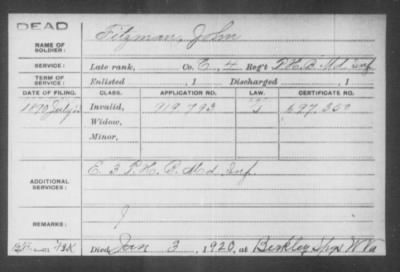 DEAD
NAME OF SOLDIER: Fitzman, John
SERVICE: Late rank, Co. C, 4 Reg't P.H.B. Md. Inf.
TERM OF SERVICE: Enlisted , 1 Discharged , 1
DATE OF FILING. CLASS. APPLICATION NO. LAW. CERTIFICATE NO.
1890 July Invalid, 919.793 697.350
Widow,
Minor,
ADDITIONAL SERVICES: E. 3 P.H.B. Md. Inf.
REMARKS:
Died Jan 3, 1920, at Berkley Spgs W Va